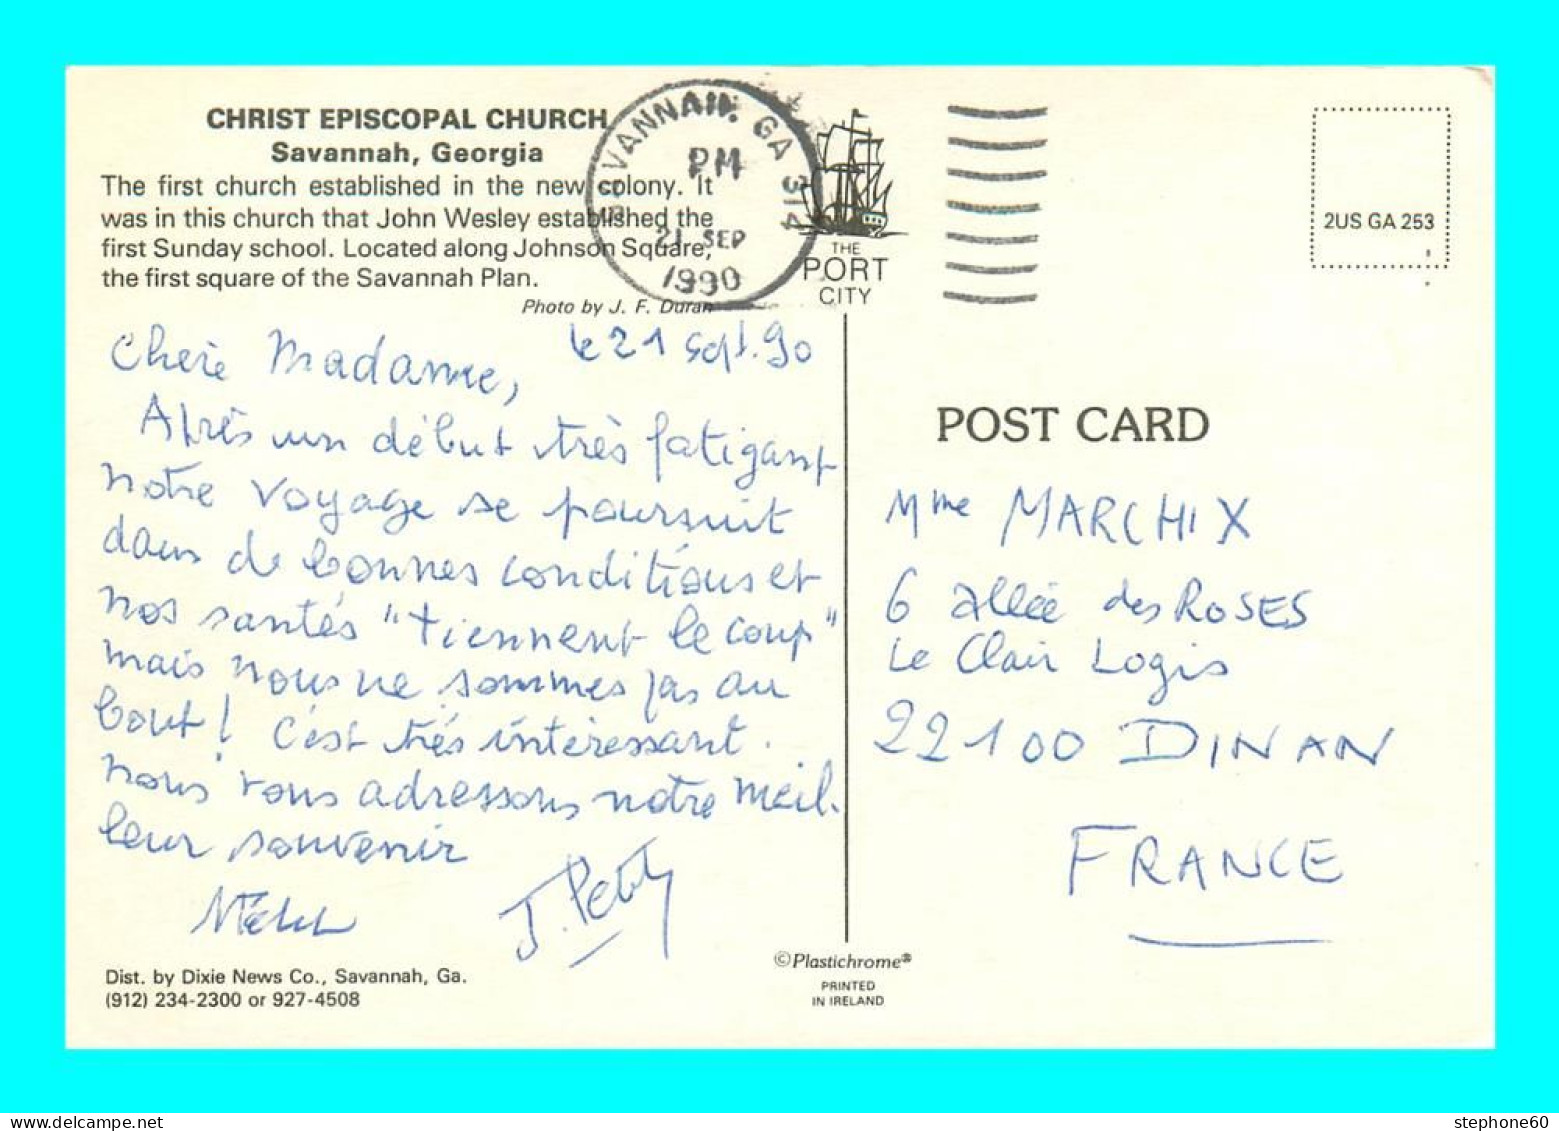 CHRIST EPISCOPAL CHURCH
Savannah, Georgia
The first church established in the new colony. It
was in this church that John Wesley established the
first Sunday school. Located along Johnson Square,
the first square of the Savannah Plan.
Photo by J. F. Duran
SAVANNAH, GA 314
PM
21 SEP
1990
THE
PORT
CITY
2US GA 253
le 21 sept. 90
Chère Madame,
Après un début très fatigant
notre voyage se poursuit
dans de bonnes conditions et
nos santés "tiennent le coup"
mais nous ne sommes pas au
bout! C'est très intéressant.
nous vous adressons notre meil-
leur souvenir
J. Petit
POST CARD
Mme MARCHIX
6 allée des ROSES
Le Clair Logis
22100 DINAN
FRANCE
Dist. by Dixie News Co., Savannah, Ga.
(912) 234-2300 or 927-4508
©Plastichrome®
PRINTED
IN IRELAND
stephone60